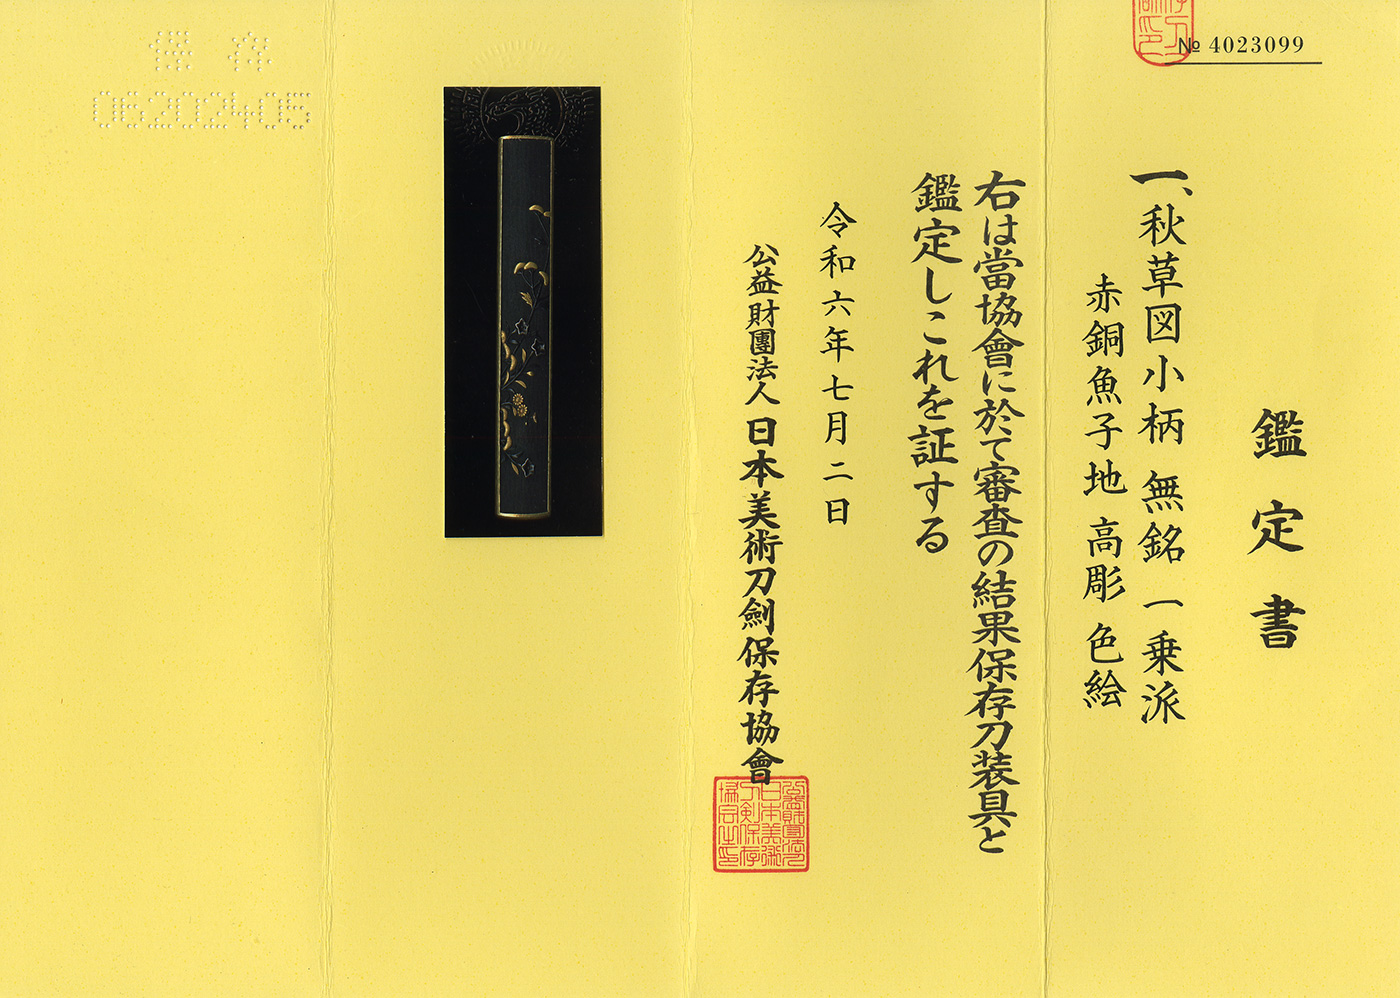 № 4023099
鑑定書
一、秋草図小柄 無銘 一乗派
赤銅魚子地 高彫 色絵
右は當協會に於て審査の結果保存刀装具と
鑑定しこれを証する
令和六年七月二日
公益財團法人 日本美術刀劍保存協會
保存
06202405